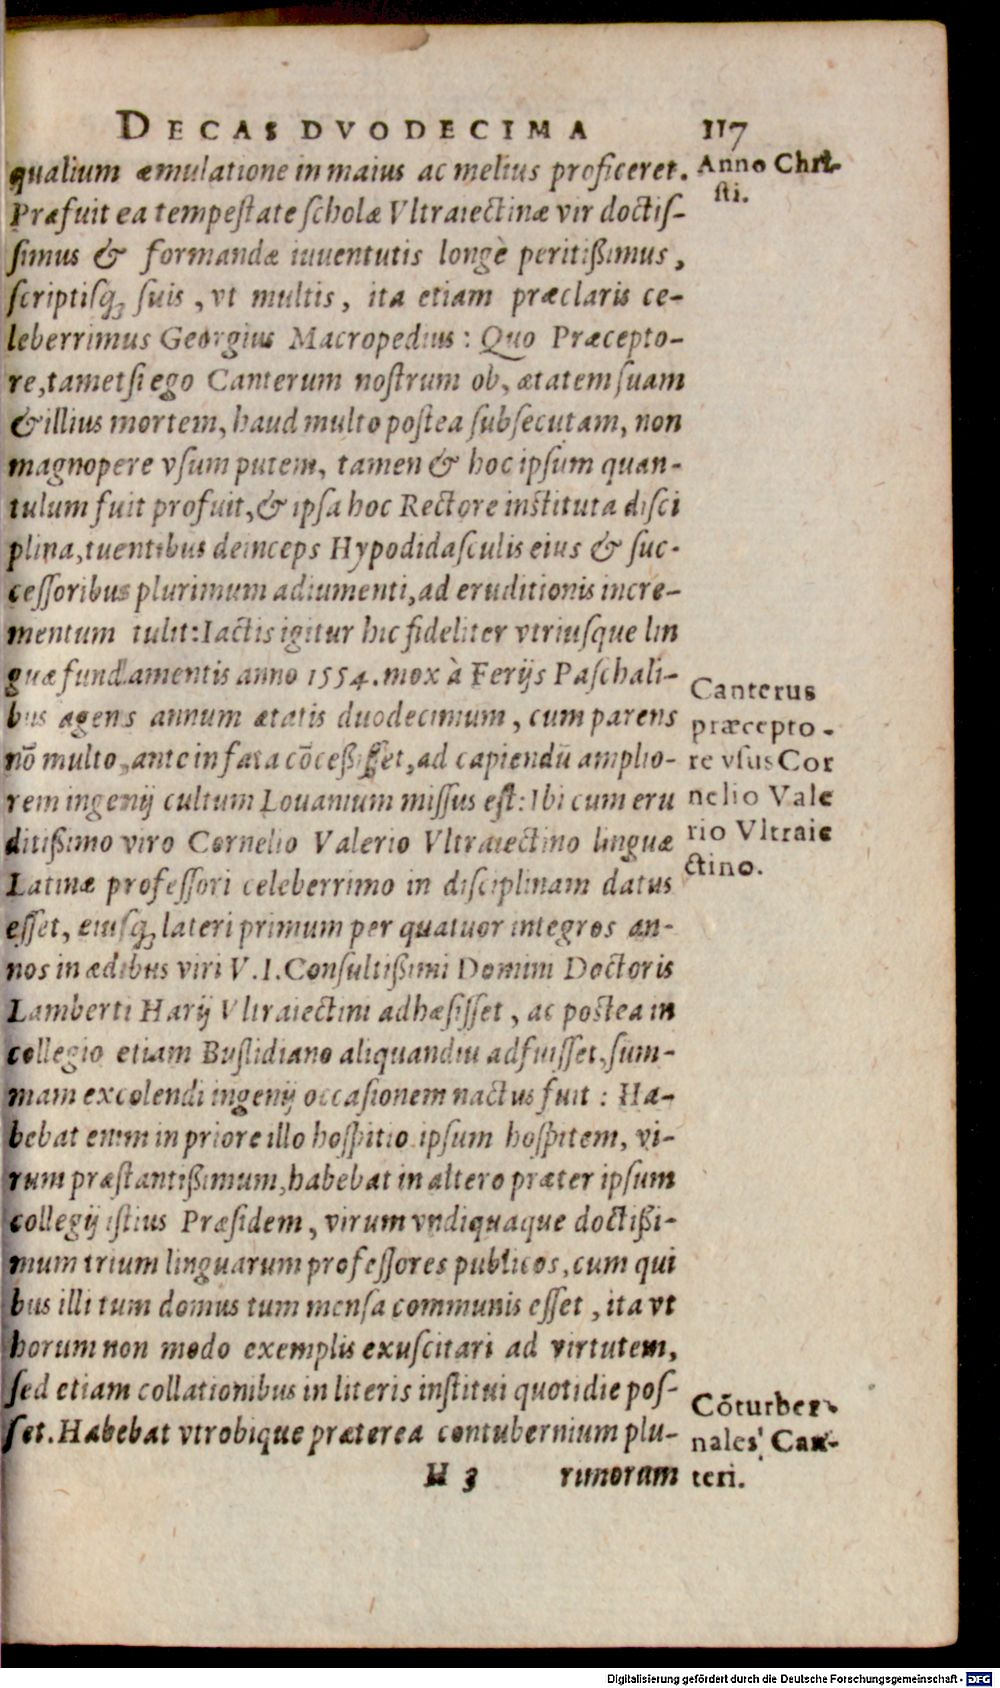 DECAS DVODECIMA 117
Anno Chri-
sti.
qualium æmulatione in maius ac melius proficeret.
Præfuit ea tempeſtate ſcholæ Vltraiectinæ vir doctiſ-
ſimus & formandæ iuuentutis longè peritißimus,
ſcriptiſq; ſuis, vt multis, ita etiam præclaris ce-
leberrimus Georgius Macropedius: Quo Præcepto-
re, tametſi ego Canterum noſtrum ob, ætatem ſuam
& illius mortem, haud multo poſtea ſubſecutam, non
magnopere vſum putem, tamen & hoc ipſum quan-
tulum fuit profuit, & ipſa hoc Rectore inſtituta diſci
plina, tuentibus deinceps Hypodidaſculis eius & ſuc-
ceſſoribus plurimum adiumenti, ad eruditionis incre-
mentum tulit: Iactis igitur hic fideliter vtriuſque lin
guæ fundamentis anno 1554. mox à Ferijs Paſchali-
bus agens annum ætatis duodecimum, cum parens
nō multo, ante in fata cōceßiſſet, ad capiendū amplio-
rem ingenij cultum Louanium miſſus eſt: Ibi cum eru
ditißimo viro Cornelio Valerio Vltraiectino linguæ
Latinæ profeſſori celeberrimo in diſciplinam datus
eſſet, eiuſq; lateri primum per quatuor integros an-
nos in ædibus viri V. I. Conſultißimi Domini Doctoris
Lamberti Harij Vltraiectini adhæſiſſet, ac poſtea in
collegio etiam Buſlidiano aliquandiu adfuiſſet, ſum-
mam excolendi ingenij occaſionem nactus fuit: Ha-
bebat enim in priore illo hoſpitio ipſum hoſpitem, vi-
rum præſtantißimum, habebat in altero præter ipſum
collegij iſtius Præſidem, virum vndiquaque doctißi-
mum trium linguarum profeſſores publicos, cum qui
bus illi tum domus tum menſa communis eſſet, ita vt
horum non modo exemplis exuſcitari ad virtutem,
ſed etiam collationibus in literis inſtitui quotidie poſ-
ſet. Habebat vtrobique præterea contubernium plu-
H 3 rimorum
Canterus
præcepto-
re vſus Cor
nelio Vale
rio Vltraie
ctino.
Cōturber-
nales Can-
teri.
Digitalisierung gefördert durch die Deutsche Forschungsgemeinschaft - DFG